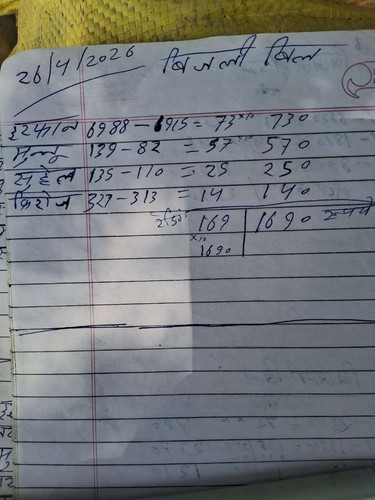 26/4/2026 बिजली बिल
इरफान 6988 - 6915 = 73×10 730
मुन्नू 139 - 82 = 57×10 570
सुहेल 135 - 110 = 25 250
फिरोज 327 - 313 = 14 140
169 1690 रुपये
×10
1690